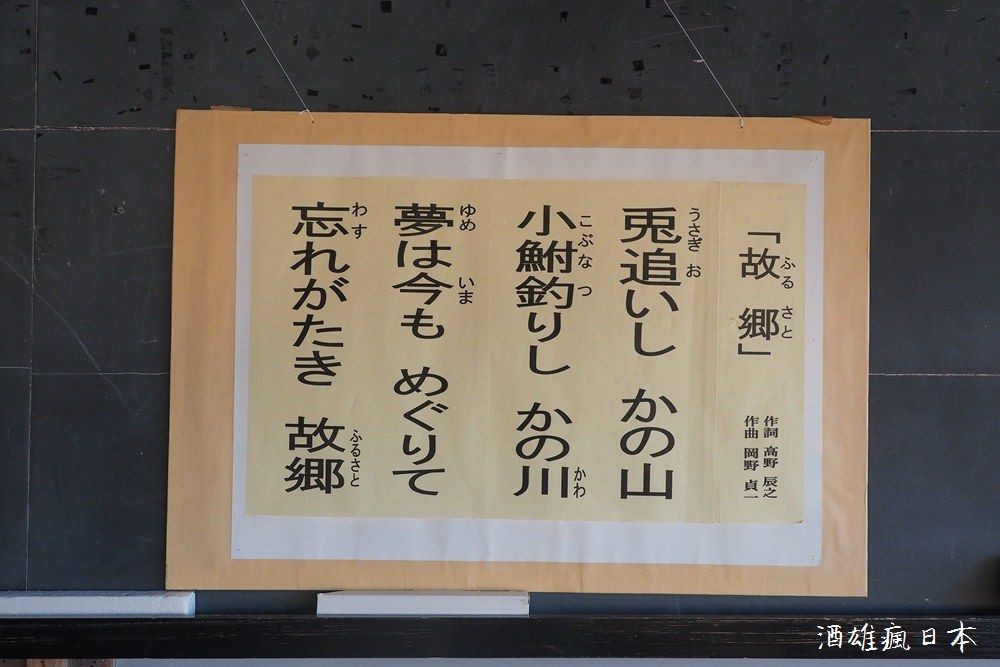 「故郷」
ふるさと
作詞 高野 辰之
作曲 岡野 貞一
うさぎ お
兎追いし かの山
こぶな つ かわ
小鮒釣りし かの川
ゆめ いま
夢は今も めぐりて
わす ふるさと
忘れがたき 故郷
酒雄瘋日本